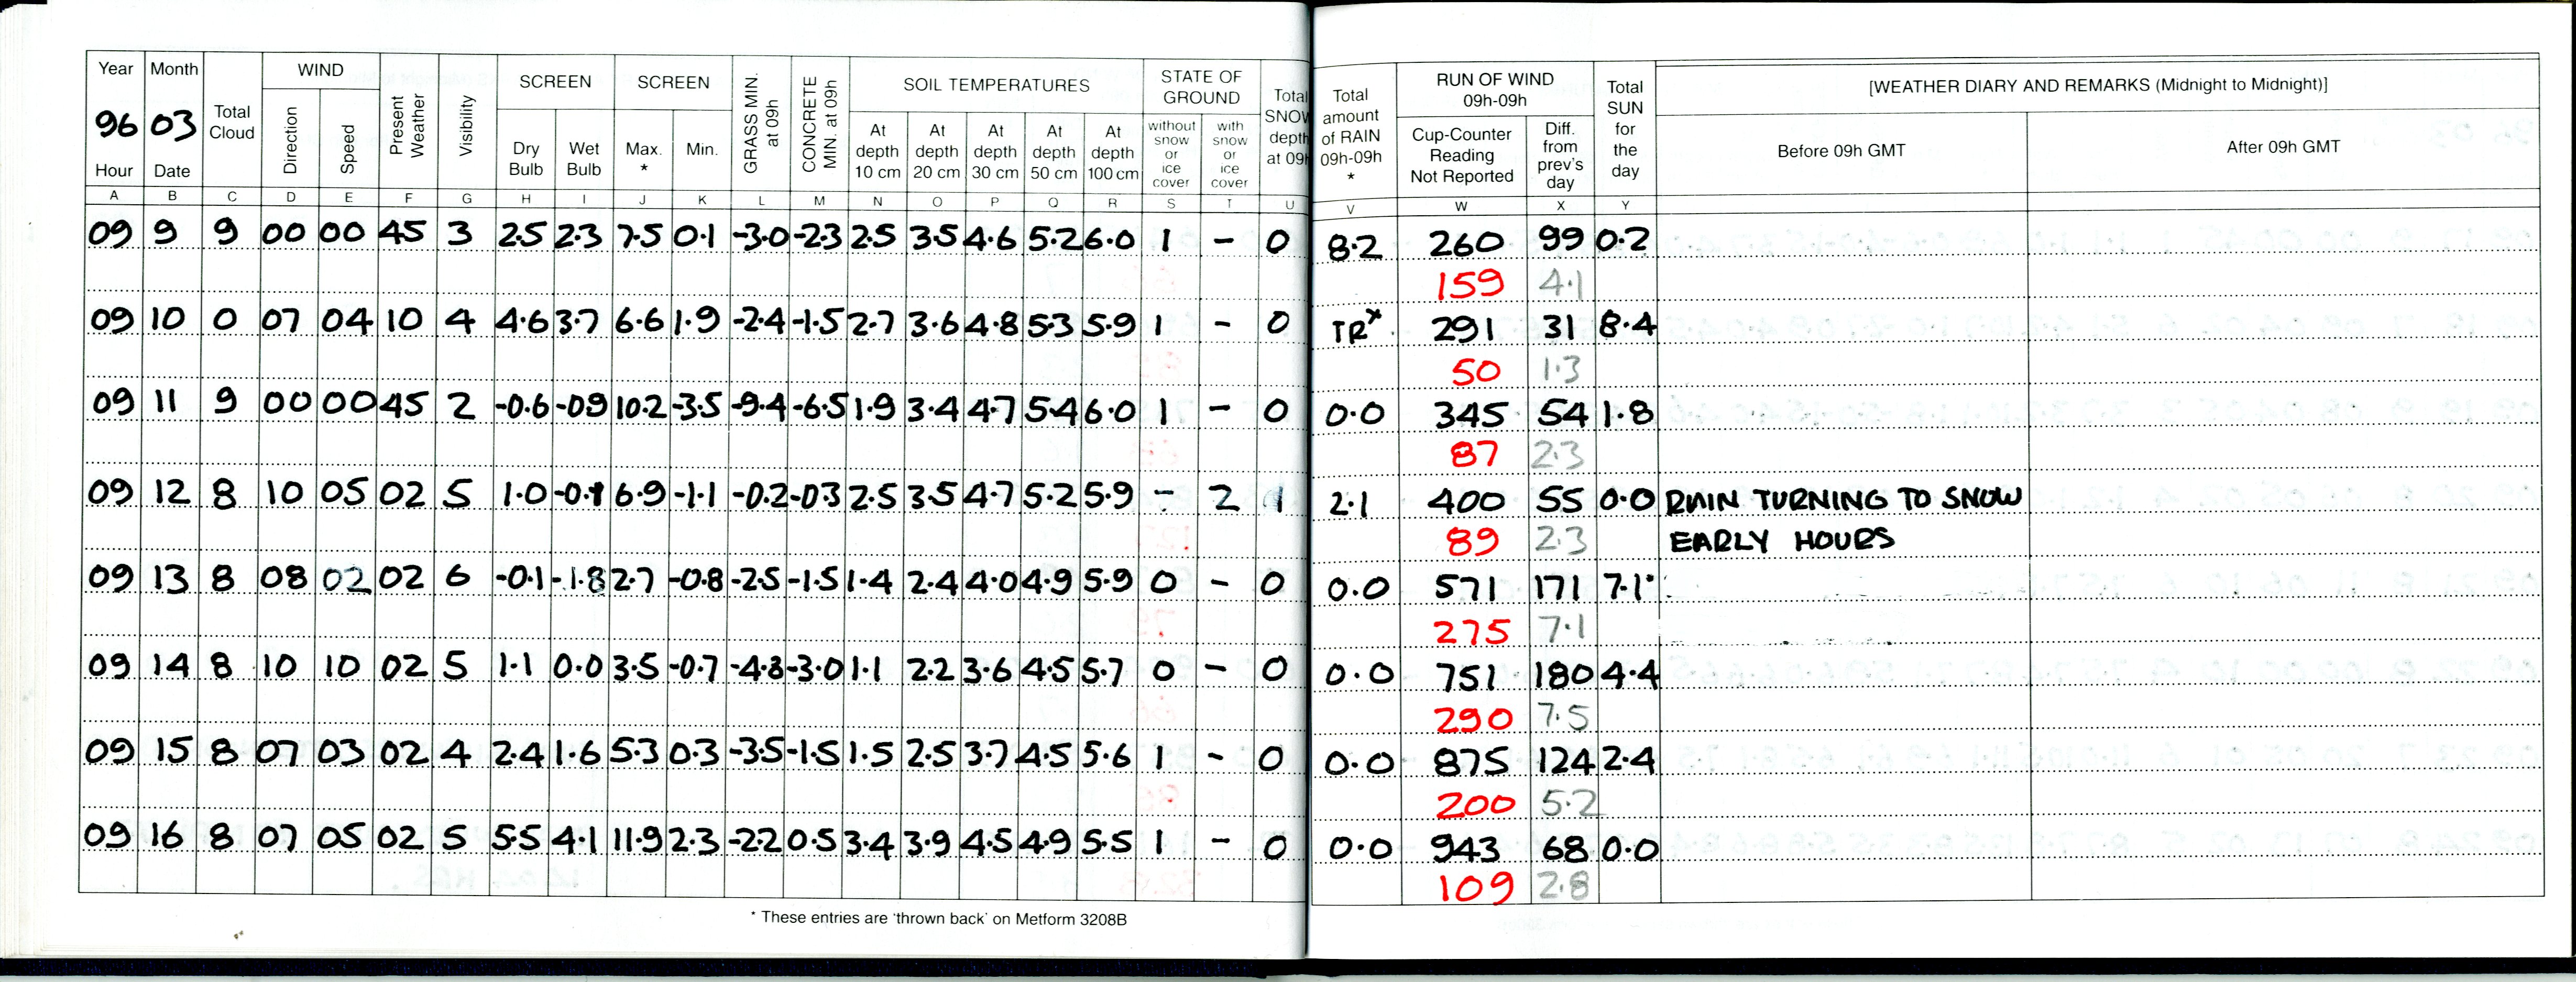 Year Month Total Cloud WIND Present Weather Visibility SCREEN SCREEN GRASS MIN. at 09h CONCRETE MIN. at 09h SOIL TEMPERATURES STATE OF GROUND Total SNOW depth at 09h Total amount of RAIN 09h-09h * RUN OF WIND 09h-09h Total SUN for the day [WEATHER DIARY AND REMARKS (Midnight to Midnight)]
96 03 Direction Speed Dry Bulb Wet Bulb Max. * Min. At depth 10 cm At depth 20 cm At depth 30 cm At depth 50 cm At depth 100 cm without snow or ice cover with snow or ice cover Cup-Counter Reading Not Reported Diff. from prev's day Before 09h GMT After 09h GMT
Hour Date
A B C D E F G H I J K L M N O P Q R S T U V W X Y
09 9 9 00 00 45 3 2.5 2.3 7.5 0.1 -3.0 -2.3 2.5 3.5 4.6 5.2 6.0 1 - 0 8.2 260 99 0.2
159 4.1
09 10 0 07 04 10 4 4.6 3.7 6.6 1.9 -2.4 -1.5 2.7 3.6 4.8 5.3 5.9 1 - 0 TRx 291 31 8.4
50 1.3
09 11 9 00 00 45 2 -0.6 -0.9 10.2 -3.5 -9.4 -6.5 1.9 3.4 4.7 5.4 6.0 1 - 0 0.0 345 54 1.8
87 2.3
09 12 8 10 05 02 5 1.0 6.9 -1.1 -0.2 -0.3 2.5 3.5 4.7 5.2 5.9 - 2 1 2.1 400 55 0.0 RAIN TURNING TO SNOW
89 2.3 EARLY HOURS
09 13 8 08 02 02 6 -0.1 -1.8 2.7 -0.8 -2.5 -1.5 1.4 2.4 4.0 4.9 5.9 0 - 0 0.0 571 171 7.1
275 7.1
09 14 8 10 10 02 5 1.1 0.0 3.5 -0.7 -4.8 -3.0 1.1 2.2 3.6 4.5 5.7 0 - 0 0.0 751 180 4.4
290 7.5
09 15 8 07 03 02 4 2.4 1.6 5.3 0.3 -3.5 -1.5 1.5 2.5 3.7 4.5 5.6 1 - 0 0.0 875 124 2.4
200 5.2
09 16 8 07 05 02 5 5.5 4.1 11.9 2.3 -2.2 0.5 3.4 3.9 4.5 4.9 5.5 1 - 0 0.0 943 68 0.0
109 2.8
* These entries are 'thrown back' on Metform 3208B